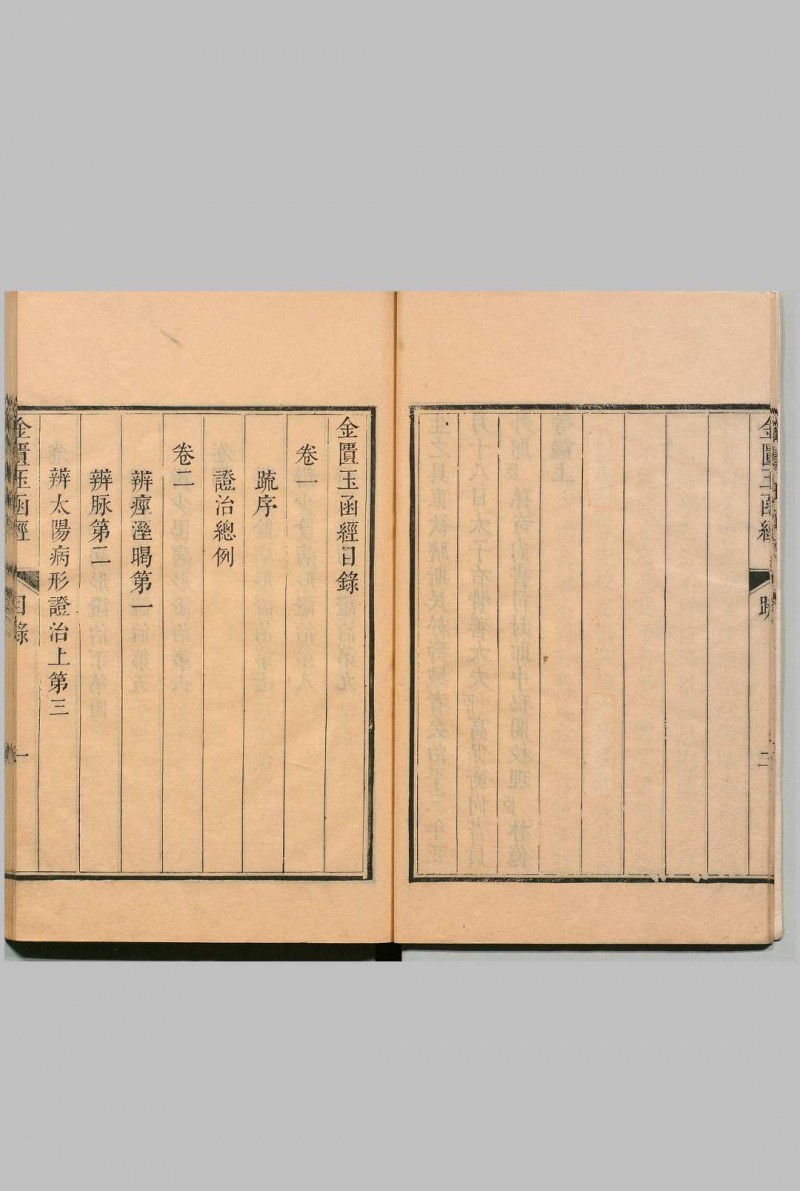 金匱玉函經
疏
二
金匱玉函經目錄
卷一
疏序
證治總例
卷二
辨痙溼暍第一
辨脉第二
辨太陽病形證治上第三
金匱玉函經
目錄
一